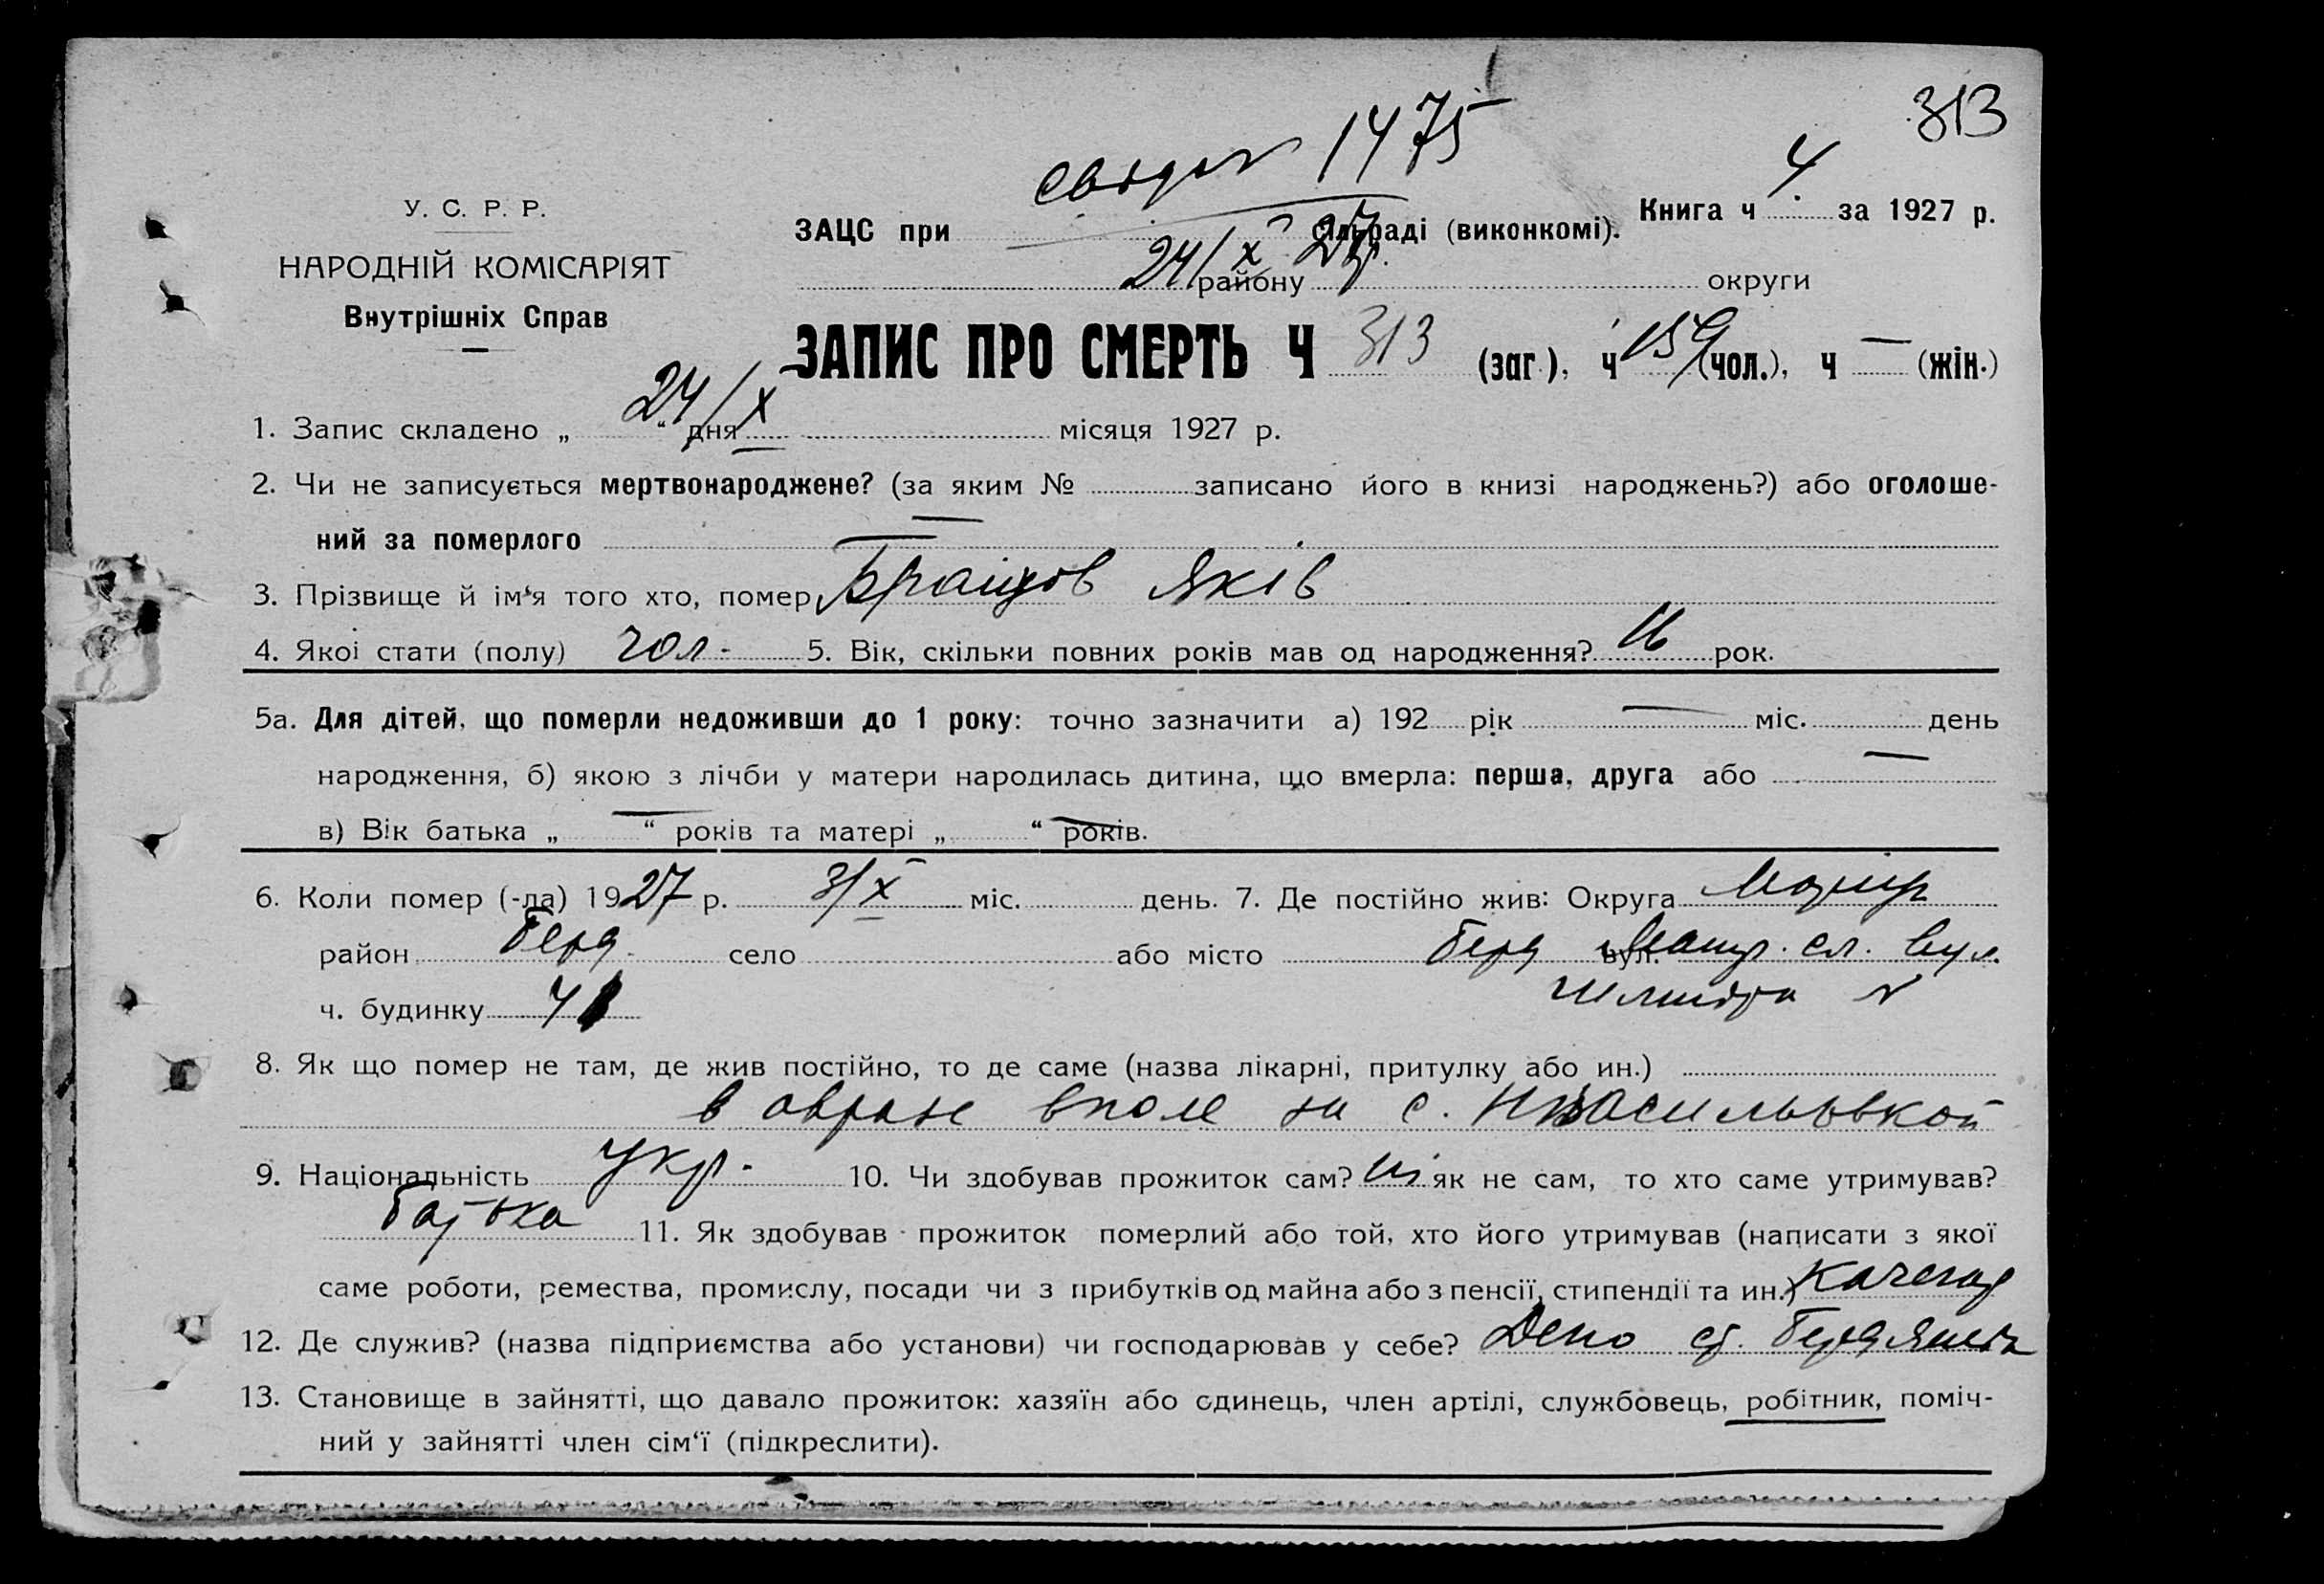 313
1475
У. С. Р. Р.
НАРОДНІЙ КОМІСАРІЯТ
Внутрішніх Справ
ЗАЦС при сільраді (виконкомі). Книга ч 4 за 1927 р.
24/X 27р. району округи
ЗАПИС ПРО СМЕРТЬ Ч 313 (заг.), ч 159 (чол.), ч — (жін.)
1. Запис складено „ 24/X “ дня місяця 1927 р.
2. Чи не записується мертвонароджене? (за яким № записано його в книзі народжень?) або оголоше-
ний за померлого —
3. Прізвище й ім‘я того хто, помер Яків
4. Якоі стати (полу) чол. 5. Вік, скільки повних років мав од народження? рок.
5а. Для дітей, що померли недоживши до 1 року: точно зазначити а) 192 рік — міс. день
народження, б) якою з лічби у матери народилась дитина, що вмерла: перша, друга або —
в) Вік батька „ — “ років та матері „ — “ років.
6. Коли помер (-ла) 1927 р. 3/X міс. день. 7. Де постійно жив: Округа
район Берд. село або місто Берд вул. сл. вул.
ч. будинку
8. Як що помер не там, де жив постійно, то де саме (назва лікарні, притулку або ин.)
в овраге в поле за с. Нвасильовкой
9. Національність укр. 10. Чи здобував прожиток сам? ні як не сам, то хто саме утримував?
батька 11. Як здобував прожиток померлий або той, хто його утримував (написати з якої
саме роботи, ремества, промислу, посади чи з прибутків од майна або з пенсії, стипендії та ин.) Качегар
12. Де служив? (назва підприємства або установи) чи господарював у себе? Депо ст. Бердянськ
13. Становище в зайнятті, що давало прожиток: хазяїн або одинець, член артілі, службовець, робітник, поміч-
ний у зайнятті член сім‘ї (підкреслити).